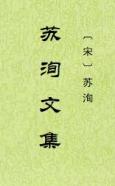 苏洵文集
〔宋〕苏洵